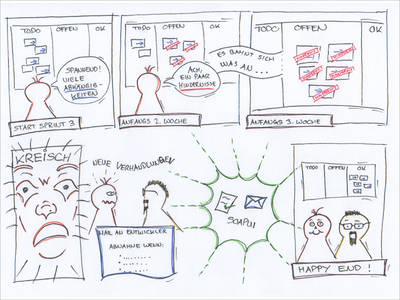 TODO OFFEN OK
SPANNEND!
VIELE
ABHÄNGIG-
KEITEN
START SPRINT 3
TODO OFFEN OK
ACH,
EIN PAAR
HINDERNISSE
ANFANGS 2. WOCHE
ES BAHNT SICH
WAS AN...
TODO OFFEN OK
ANFANGS 3. WOCHE
KREISCH
NEUE VERHANDLUNGEN
MAIL AN ENTWICKLER
ABNAHME WENN:
SOAPUI
TODO OFFEN OK
HAPPY END!